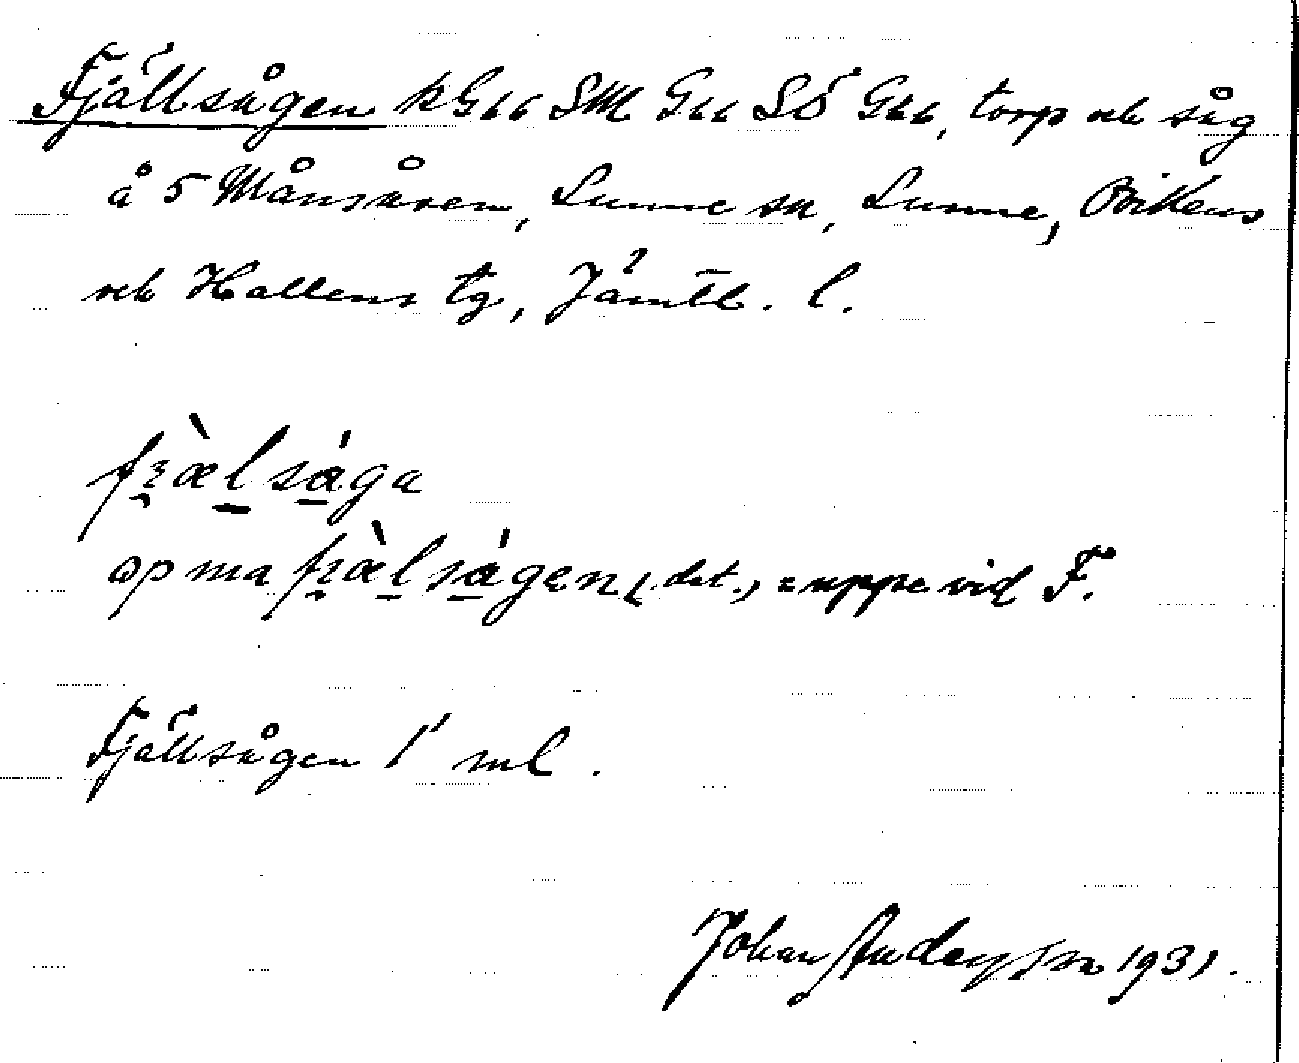 Fjällsågen k G66 SM G66 SÖ G66, torp och såg
å 5 Månsåsen, Sunne sn, Sunne, Ovikens
och Hallens tg, Jämtl. l.
fjæ̀lsága
opma fjæ̀lságen (det.) = uppe vid F.
Fjällsågen 1' ml.
Johan Andersson 1931.